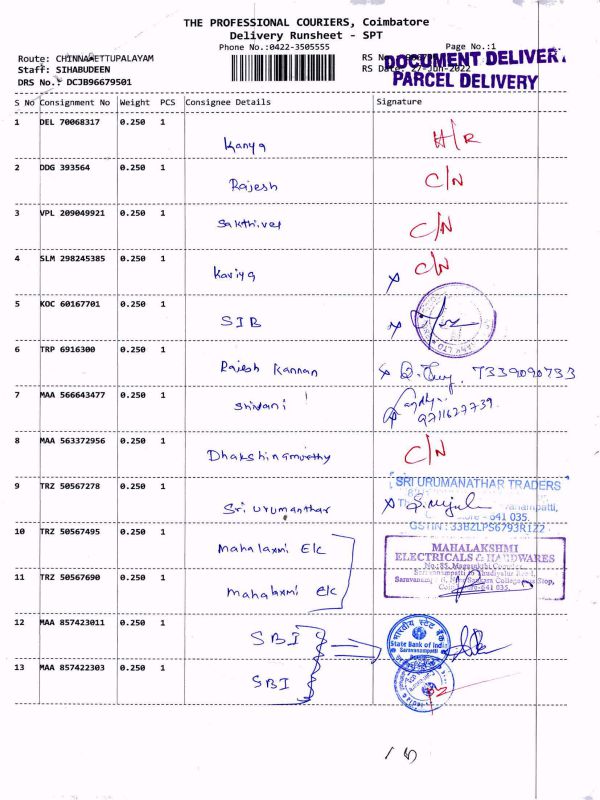 THE PROFESSIONAL COURIERS, Coimbatore
Delivery Runsheet - SPT
Phone No.:0422-3505555
Page No.:1
Route: CHINNAVETTUPALAYAM
RS No
Staff: SIHABUDEEN
RS Date: 27-Jun-2022
DRS No.: DCJB96679501
DOCUMENT DELIVERY
PARCEL DELIVERY
S No Consignment No Weight PCS Consignee Details Signature
1 DEL 70068317 0.250 1 Kanya H/R
2 DDG 393564 0.250 1 Rajesh C/N
3 VPL 209049921 0.250 1 Sakthivel C/N
4 SLM 298245385 0.250 1 Kaviya C/N
5 KOC 60167701 0.250 1 SIB
6 TRP 6916300 0.250 1 Rajesh Kannan 7339090733
7 MAA 566643477 0.250 1 Shivani 9711627739
8 MAA 563372956 0.250 1 Dhakshinamurthy C/N
9 TRZ 50567278 0.250 1 Sri Urumanthar
SRI URUMANATHAR TRADERS
641 035.
GSTIN: 33BZLPS6793R1Z2
10 TRZ 50567495 0.250 1 Mahalaxmi Elc
MAHALAKSHMI
ELECTRICALS & HARDWARES
11 TRZ 50567690 0.250 1 Mahalaxmi elc
12 MAA 857423011 0.250 1 SBI
भारतीय स्टेट बैंक
State Bank of India
Saravanampatti
13 MAA 857422303 0.250 1 SBI